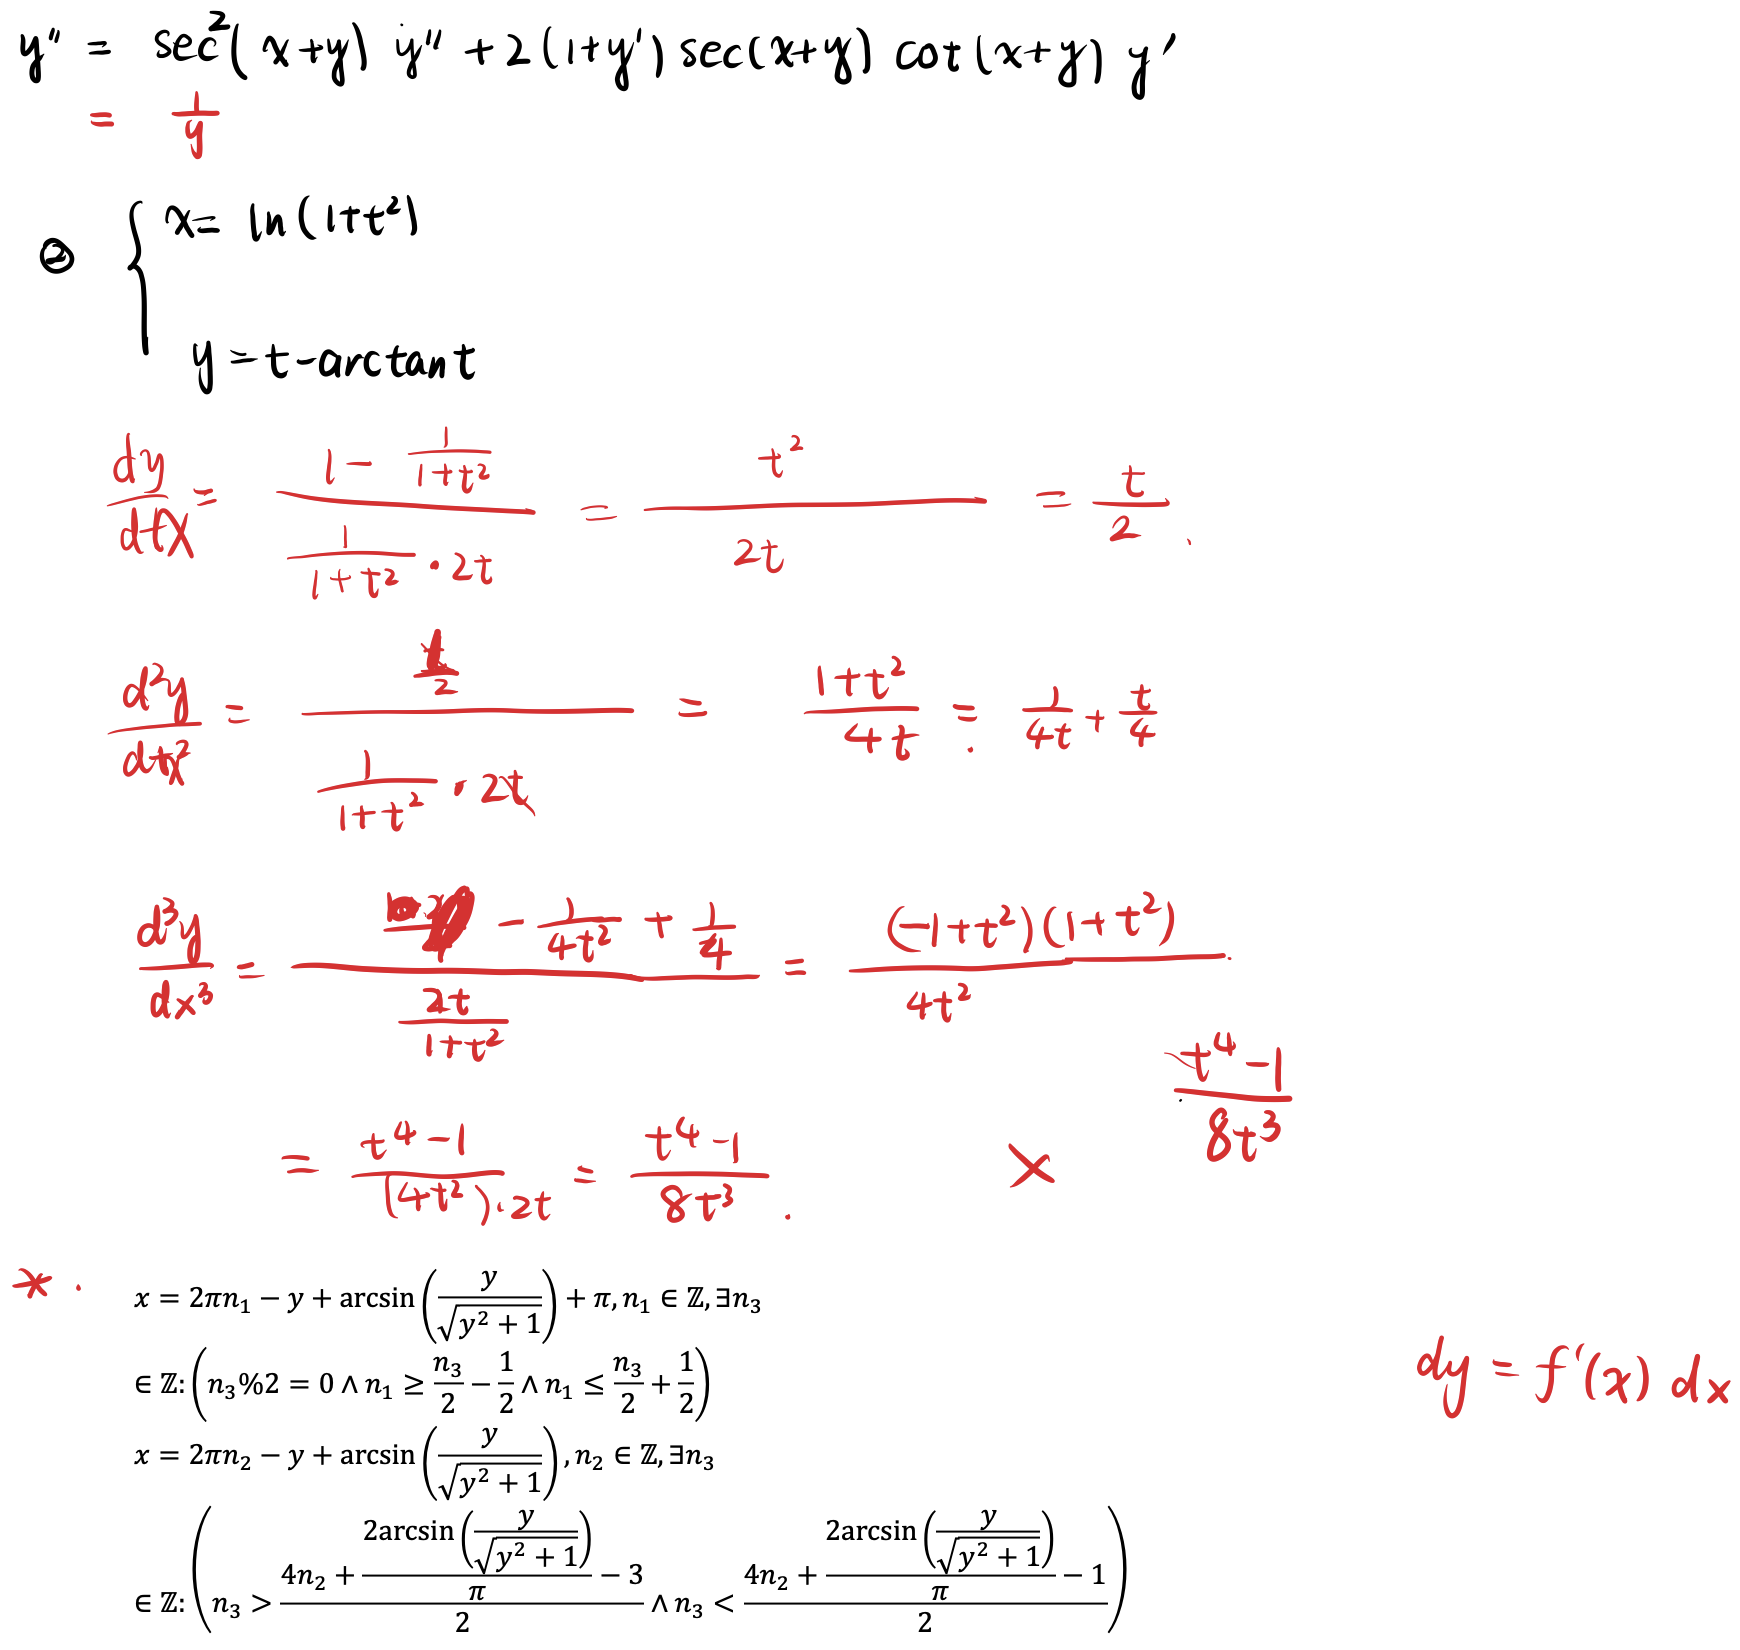 y'' = sec²(x+y) y'' + 2(1+y') sec(x+y) cot(x+y) y'
= 1/y
② { x = ln(1+t²)
y = t - arctan t
dy/dtx = (1 - 1/(1+t²)) / (1/(1+t²) · 2t) = t²/2t = t/2 .
d²y/dtx² = (1/2) / (1/(1+t²) · 2t) = (1+t²)/4t = 1/4t + t/4
d³y/dx³ = (-1/4t² + 1/4) / (2t/(1+t²)) = (-1+t²)(1+t²)/4t²
t⁴-1/8t³
= t⁴-1/(4t²)·2t = t⁴-1/8t³ . ×
* . x = 2πn₁ − y + arcsin(y/√(y² + 1)) + π, n₁ ∈ ℤ, ∃n₃
∈ ℤ: (n₃%2 = 0 ∧ n₁ ≥ n₃/2 − 1/2 ∧ n₁ ≤ n₃/2 + 1/2)
dy = f'(x) dx
x = 2πn₂ − y + arcsin(y/√(y² + 1)), n₂ ∈ ℤ, ∃n₃
∈ ℤ: (n₃ > (4n₂ + 2arcsin(y/√(y² + 1))/π − 3)/2 ∧ n₃ < (4n₂ + 2arcsin(y/√(y² + 1))/π − 1)/2)